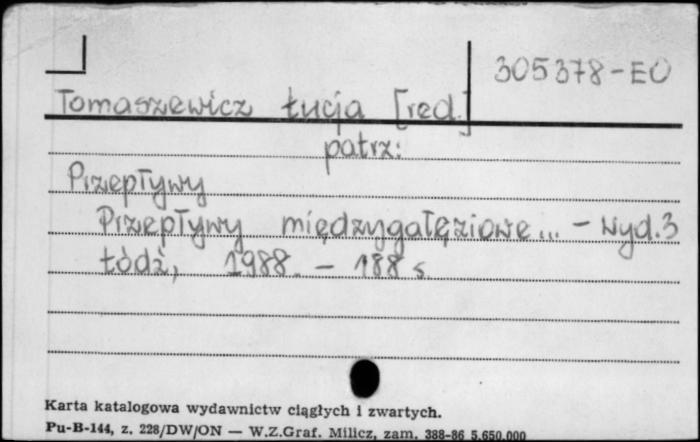 305378-EO
Tomaszewicz Łucja [red.]
patrz:
Przepływy
Przepływy międzygałęziowe... - Wyd.3
Łódź, 1988. - 188 s
Karta katalogowa wydawnictw ciągłych i zwartych.
Pu-B-144, z. 228/DW/ON — W.Z.Graf. Milicz, zam. 388-86 5.650.000